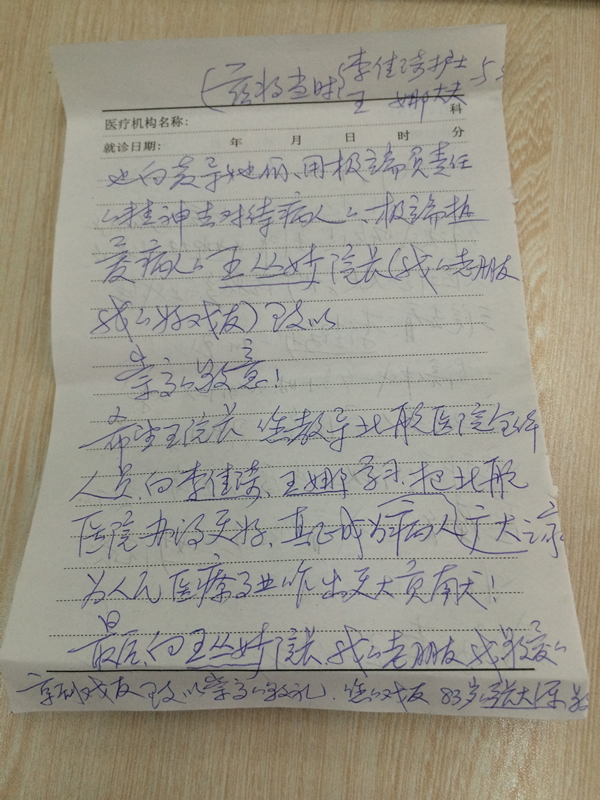 李佳琦护士
王 娜大夫
科
医疗机构名称:
就诊日期: 年 月 日 时 分
也向 导她们、用极端负责任
的精神去对待病人的、极端热
爱病人的王丛 院长(我的老朋友
我的好戏友)致以
崇高的敬意!
希望王院长 教导北航医院全体
人员向李佳琦、王娜学习、把北航
医院办得更好、真正成为病人
为人民医疗事业作出更大贡献!
最后、向王丛 院长 我的老朋友 我敬爱的
京剧戏友致以崇高的敬礼. 您的戏友 83岁